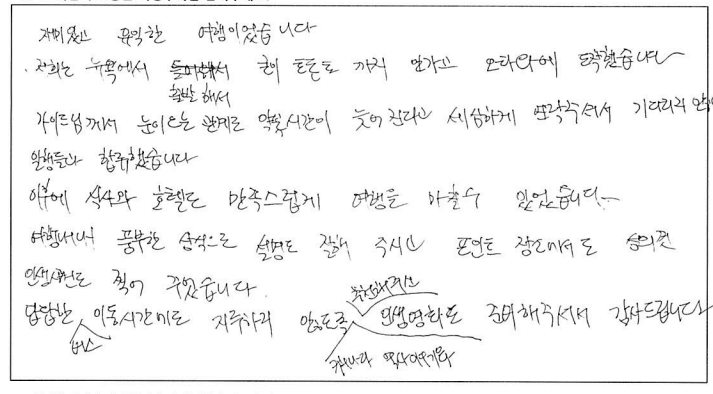 재미있고 유익한 여행이었습니다
저희는 뉴욕에서 출발해서 토론토 까지 안가고 오타와에 도착했습니다
가이드님께서 눈이오는 관계로 약속시간이 늦어진다고 세심하게 연락주셔서 기다리지 않고
일행들과 합류했습니다
이후에 식사와 호텔도 만족스럽게 여행을 마칠수 있었습니다
여행내내 풍부한 상식으로 설명도 잘해 주시고 포인트 장소에서도
인생사진도 찍어 주셨습니다
답답한 버스 이동시간에도 지루하지 않도록 캐나다 역사이야기와 추천해주신 인생영화도 준비해주셔서 감사드립니다